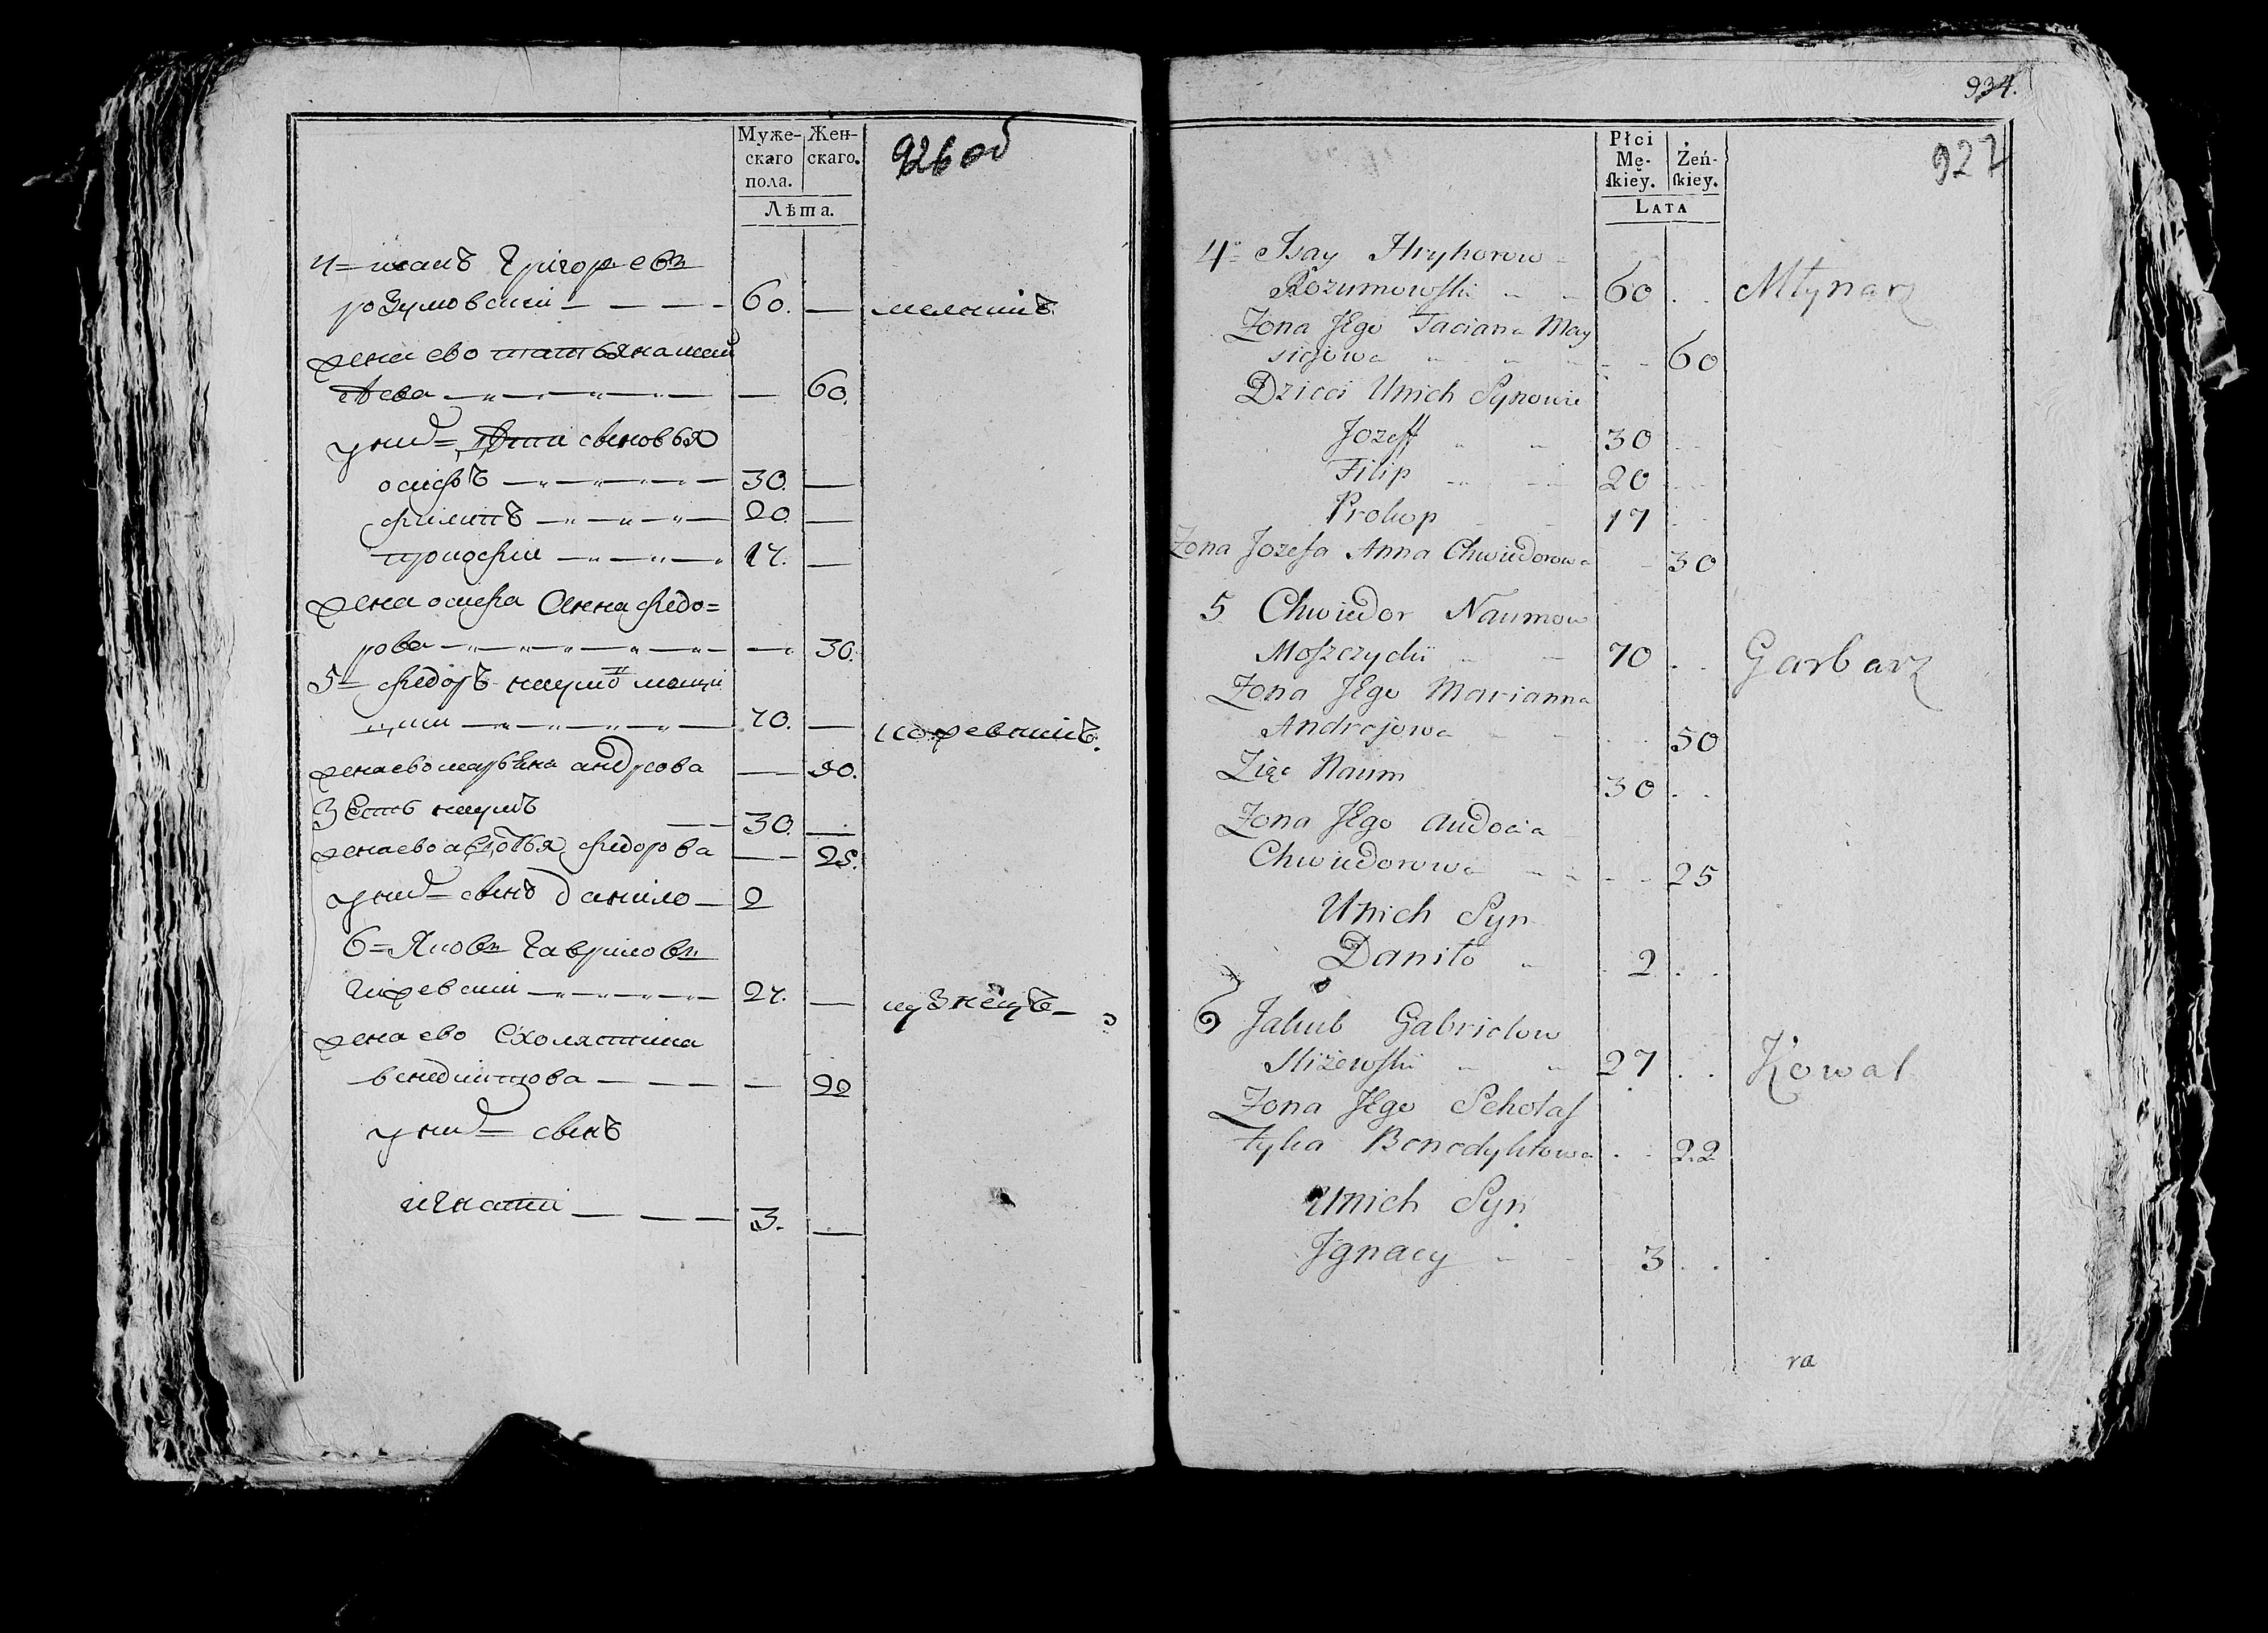 Муже-
скаго
пола.
Жен-
скаго.
Лѣта.
926 об
4= исай Григоревъ
розумовский 60. мельникъ
жена ево татьяна мои
сѣева 60.
у них= дѣти сыновья
осифъ 30.
филипъ 20.
прокофий 17.
жена осифа Анна федо=
рова 30.
5= федоръ наумо мощи
цкий 70. кожевникъ.
жена ево марьяна андреова 50.
Зеть наумъ 30.
жена ево авдотья федорова 25.
у них= сынъ данило 2
6= Яковъ Гаврилов
жена ево Схоластика
бенедиктова 22
у них= сынъ
27. кузнецъ
игнатий 3.
934.
927
Płci
Mę-
ſkiey.
Żeń-
ſkiey.
LATA
4= Isay Hryhorow
Rozumowski 60 Młynarz
Zona JEgo Taciana May
siejowa 60
Dzieci Unich Synowie
Jozeff 30
Filip 20
Prokop 17
Zona Jozefa Anna Chwiedorowa 30
5 Chwiedor Naumow
Moszczycki 70 Garbarz
Zona JEgo Marianna
Andrejowa 50
Zięc Naum 30
Zona JEgo Audocia
Chwiedorowa 25
Unich Syn
Daniło 2
6 Jakub Gabrielow
27 Kowal
Zona JEgo Schołas
tyka Benedyktowa 22
Unich Syn
Jgnacy 3
ra